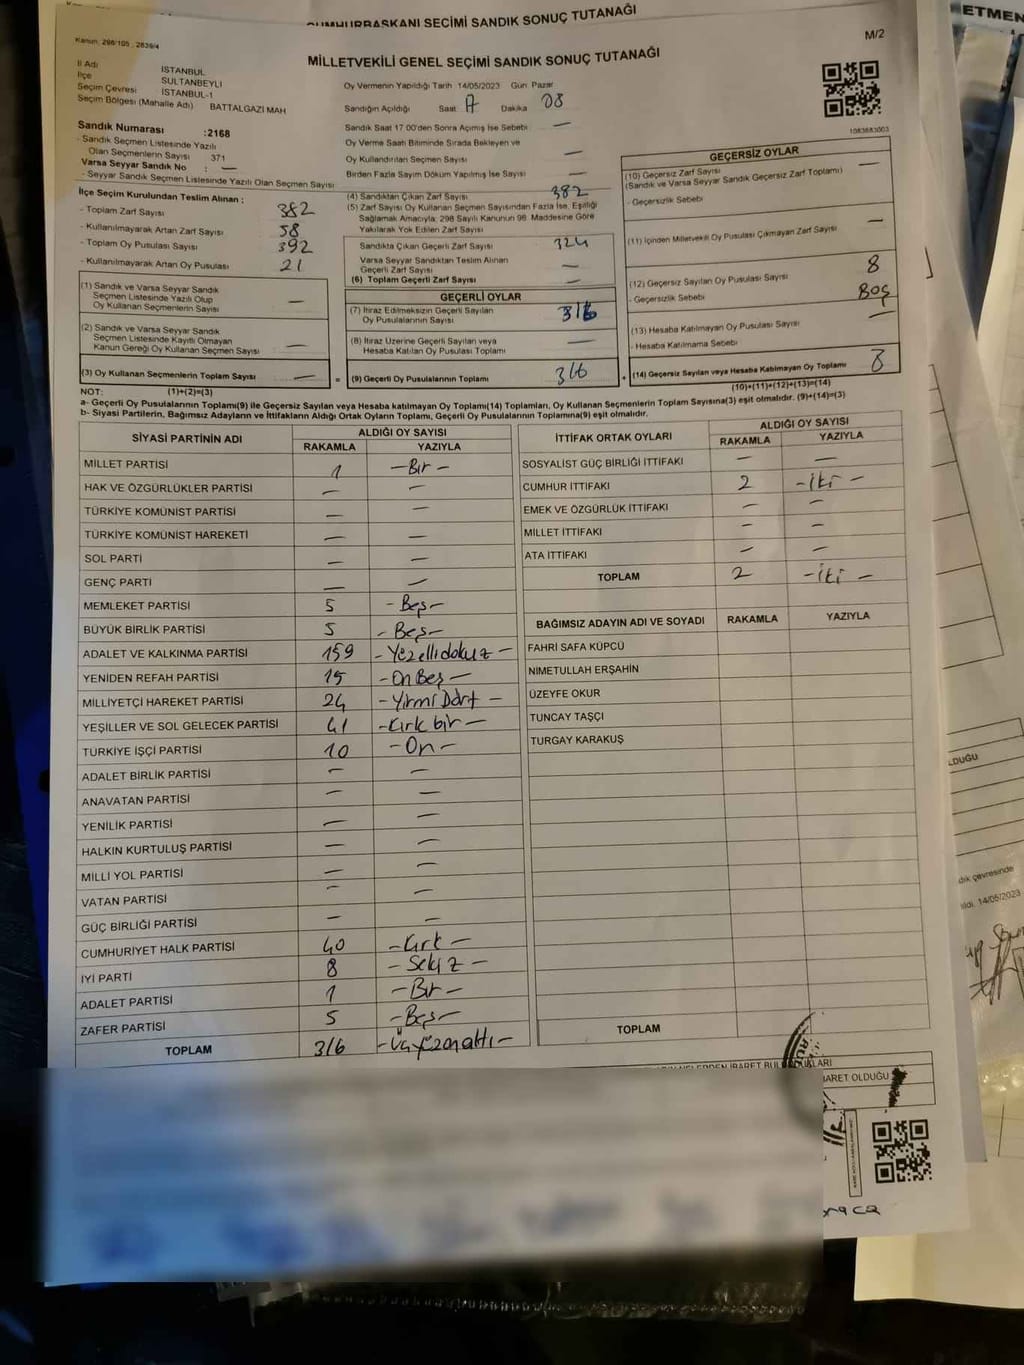 CUMHURBAŞKANI SEÇİMİ SANDIK SONUÇ TUTANAĞI
ETMEN
Kanun: 298/105 , 2839/4
M/2
MİLLETVEKİLİ GENEL SEÇİMİ SANDIK SONUÇ TUTANAĞI
İl Adı İSTANBUL
İlçe SULTANBEYLİ
Seçim Çevresi İSTANBUL-1
Seçim Bölgesi (Mahalle Adı) BATTALGAZI MAH
Oy Vermenin Yapıldığı Tarih 14/05/2023 Gün: Pazar
Sandığın Açıldığı Saat Dakika 08
Sandık Saat 17 00'den Sonra Açımış İse Sebebi —
Oy Verme Saati Bitiminde Sırada Bekleyen ve
Oy Kullandırılan Seçmen Sayısı —
Birden Fazla Sayım Döküm Yapılmış İse Sayısı —
1083683003
Sandık Numarası :2168
- Sandık Seçmen Listesinde Yazılı
Olan Seçmenlerin Sayısı 371
Varsa Seyyar Sandık No : —
- Seyyar Sandık Seçmen Listesinde Yazılı Olan Seçmen Sayısı
İlçe Seçim Kurulundan Teslim Alınan :
- Toplam Zarf Sayısı 382
- Kullanılmayarak Artan Zarf Sayısı 58
- Toplam Oy Pusulası Sayısı 392
- Kullanılmayarak Artan Oy Pusulası 21
(1) Sandık ve Varsa Seyyar Sandık
Seçmen Listesinde Yazılı Olup
Oy Kullanan Seçmenlerin Sayısı —
(2) Sandık ve Varsa Seyyar Sandık
Seçmen Listesinde Kayıtlı Olmayan
Kanun Gereği Oy Kullanan Seçmen Sayısı —
(3) Oy Kullanan Seçmenlerin Toplam Sayısı —
(4) Sandıktan Çıkan Zarf Sayısı 382
(5) Zarf Sayısı Oy Kullanan Seçmen Sayısından Fazla İse, Eşitliği
Sağlamak Amacıyla, 298 Sayılı Kanunun 98. Maddesine Göre
Yakılarak Yok Edilen Zarf Sayısı
Sandıkta Çıkan Geçerli Zarf Sayısı 324
Varsa Seyyar Sandıktan Teslim Alınan
Geçerli Zarf Sayısı —
(6) Toplam Geçerli Zarf Sayısı —
GEÇERLİ OYLAR
(7) İtiraz Edilmeksizin Geçerli Sayılan
Oy Pusulalarının Sayısı 316
(8) İtiraz Üzerine Geçerli Sayılan veya
Hesaba Katılan Oy Pusulası Toplamı —
= (9) Geçerli Oy Pusulalarının Toplamı 316
GEÇERSİZ OYLAR
(10) Geçersiz Zarf Sayısı —
(Sandık ve Varsa Seyyar Sandık Geçersiz Zarf Toplamı)
- Geçersizlik Sebebi
(11) İçinden Milletvekili Oy Pusulası Çıkmayan Zarf Sayısı —
(12) Geçersiz Sayılan Oy Pusulası Sayısı 8
- Geçersizlik Sebebi Boş
(13) Hesaba Katılmayan Oy Pusulası Sayısı —
- Hesaba Katılmama Sebebi
+ (14) Geçersiz Sayılan veya Hesaba Katılmayan Oy Toplamı 8
NOT: (1)+(2)=(3)
(10)+(11)+(12)+(13)=(14)
a- Geçerli Oy Pusulası Toplamı(9) ile Geçersiz Sayılan veya Hesaba katılmayan Oy Toplamı(14) Toplamları, Oy Kullanan Seçmenlerin Toplam Sayısına(3) eşit olmalıdır. (9)+(14)=(3)
b- Siyasi Partilerin, Bağımsız Adayların ve İttifakların Aldığı Ortak Oyların Toplamı, Geçerli Oy Pusulalarının Toplamına(9) eşit olmalıdır.
SİYASİ PARTİNİN ADI ALDIĞI OY SAYISI
RAKAMLA YAZIYLA
MİLLET PARTİSİ 1 — Bir —
HAK VE ÖZGÜRLÜKLER PARTİSİ — —
TÜRKİYE KOMÜNİST PARTİSİ — —
TÜRKİYE KOMÜNİST HAREKETİ — —
SOL PARTİ — —
GENÇ PARTİ — —
MEMLEKET PARTİSİ 5 - Beş -
BÜYÜK BİRLİK PARTİSİ 5 - Beş -
ADALET VE KALKINMA PARTİSİ 159 - Yüzellidokuz -
YENİDEN REFAH PARTİSİ 15 - On Beş -
MİLLİYETÇİ HAREKET PARTİSİ 24 - Yirmi Dört -
YEŞİLLER VE SOL GELECEK PARTİSİ 41 - Kırk bir -
TÜRKİYE İŞÇİ PARTİSİ 10 - On -
ADALET BİRLİK PARTİSİ — —
ANAVATAN PARTİSİ — —
YENİLİK PARTİSİ — —
HALKIN KURTULUŞ PARTİSİ — —
MİLLİ YOL PARTİSİ — —
VATAN PARTİSİ — —
GÜÇ BİRLİĞİ PARTİSİ — —
CUMHURİYET HALK PARTİSİ 40 - Kırk -
İYİ PARTİ 8 - Sekiz -
ADALET PARTİSİ 1 - Bir -
ZAFER PARTİSİ 5 - Beş -
TOPLAM 316 - Üçyüzonaltı -
İTTİFAK ORTAK OYLARI ALDIĞI OY SAYISI
RAKAMLA YAZIYLA
SOSYALİST GÜÇ BİRLİĞİ İTTİFAKI — —
CUMHUR İTTİFAKI 2 - iki -
EMEK VE ÖZGÜRLÜK İTTİFAKI — —
MİLLET İTTİFAKI — —
ATA İTTİFAKI — —
TOPLAM 2 - iki -
BAĞIMSIZ ADAYIN ADI VE SOYADI RAKAMLA YAZIYLA
FAHRİ SAFA KÜPCÜ
NİMETULLAH ERŞAHİN
ÜZEYFE OKUR
TUNCAY TAŞÇİ
TURGAY KARAKUŞ
TOPLAM
ARET OLDUĞU
LDUĞU
dık çevresinde
ildi. 14/05/2023